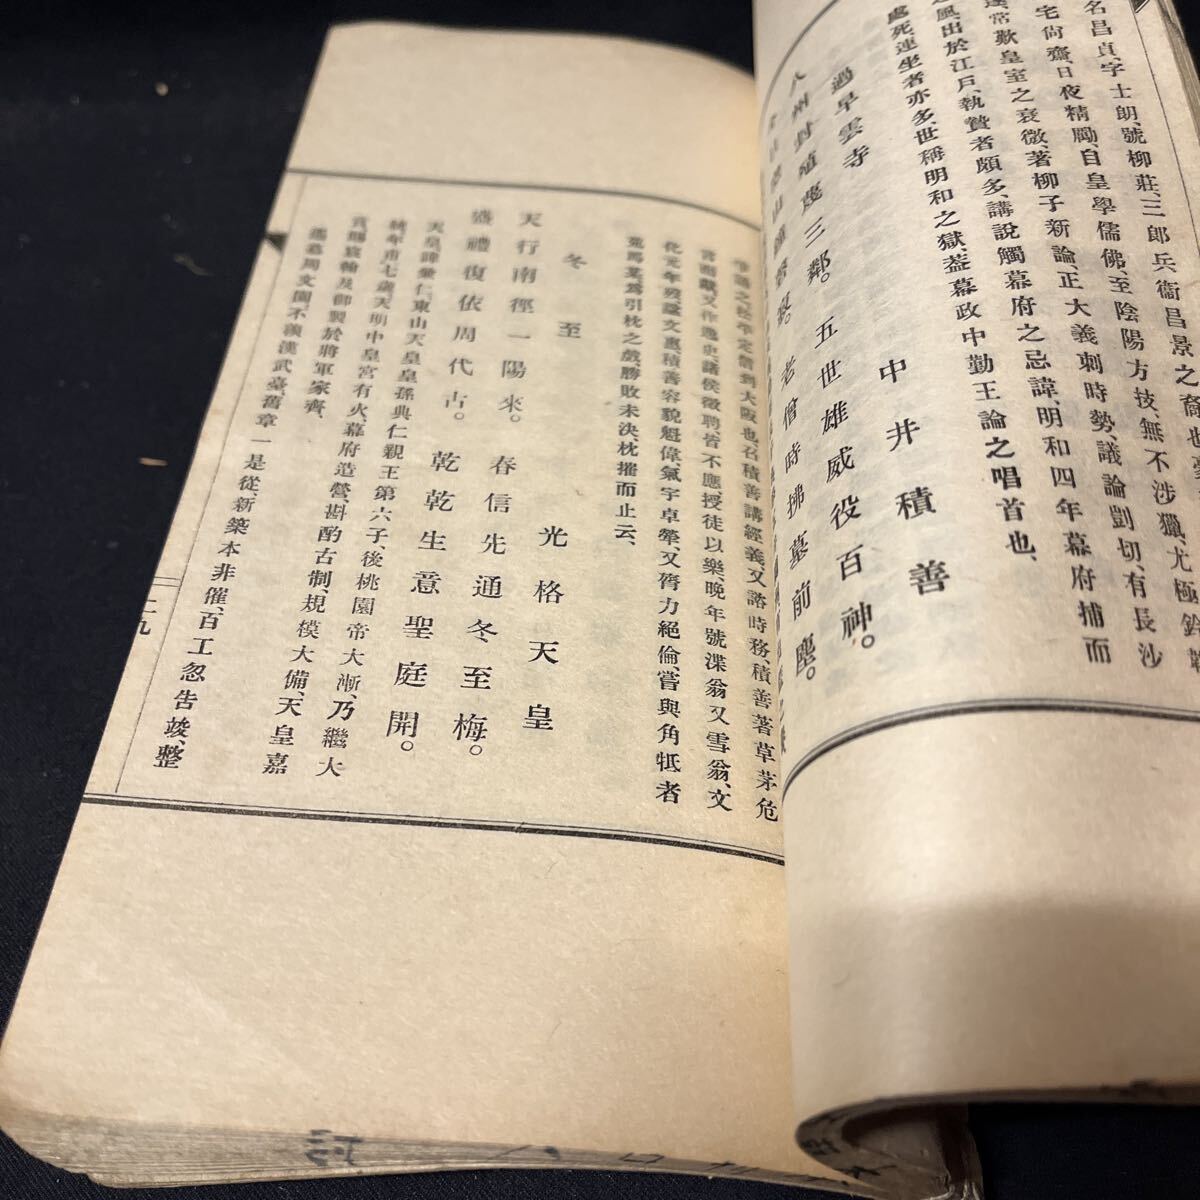 名昌貞、字士朗、號柳莊、三郎兵衞昌景之裔也、
宅尙齋、日夜精勵、自皇學儒佛、至陰陽方技、無不涉獵、尤極鈴韜
常歎皇室之衰微、著柳子新論、正大義刺時勢、議論剴切、有長沙
風、出於江戶、執贄者頗多、講說觸幕府之忌諱、明和四年幕府捕而
處死、連坐者亦多、世稱明和之獄、蓋幕政中勤王論之唱首也、
過早雲寺　中井積善
八州封殖震三鄰。五世雄威役百神。
老僧時拂墓前塵。
松平定信到大阪也、召積善講經義、又諮時務、積善著草茅危
言而獻、又作逸史、諸侯徵聘、皆不應、授徒以樂、晚年號渫翁又雪翁、文
化元年歿、諡文惠、積善容貌魁偉、氣宇卓犖、又膂力絕倫、嘗與角牴者
某爲引枕之戲、勝敗未決、枕摧而止云、
冬至　光格天皇
天行南徑一陽來。春信先通冬至梅。
盛禮復依周代古。乾乾生意聖庭開。
天皇諱兼仁、東山天皇皇孫典仁親王第六子、後桃園帝大漸、乃繼大
統、年甫七歲、天明中皇宮有火、幕府造營、斟酌古制、規模大備、天皇嘉
賞、賜宸翰及御製於將軍家齊、
周文園不擬漢武臺、舊章一是從、新築本非催、百工忽告竣、整
二九